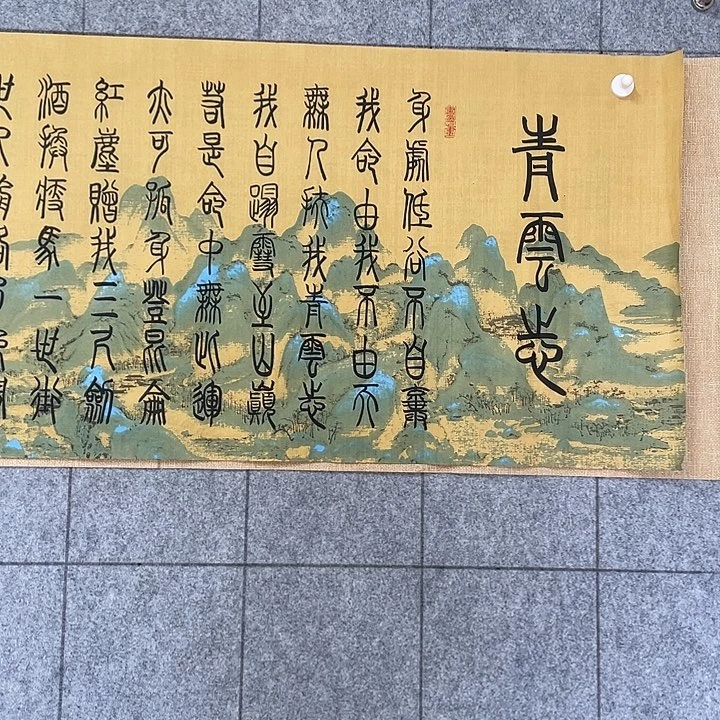 青雲志
身處低谷不自棄
我命由我不由天
無人扶我青雲志
我自蹋雪至山巔
若是命中無此運
亦可孤身登昆侖
紅塵贈我三尺劍
酒換瘦馬一世街
世人